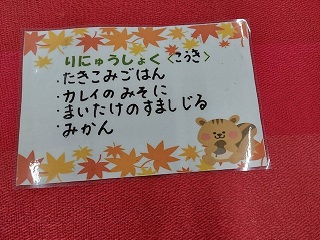 りにゅうしょく〈こうき〉
・たきこみごはん
・カレイのみそに
・まいたけのすましじる
・みかん